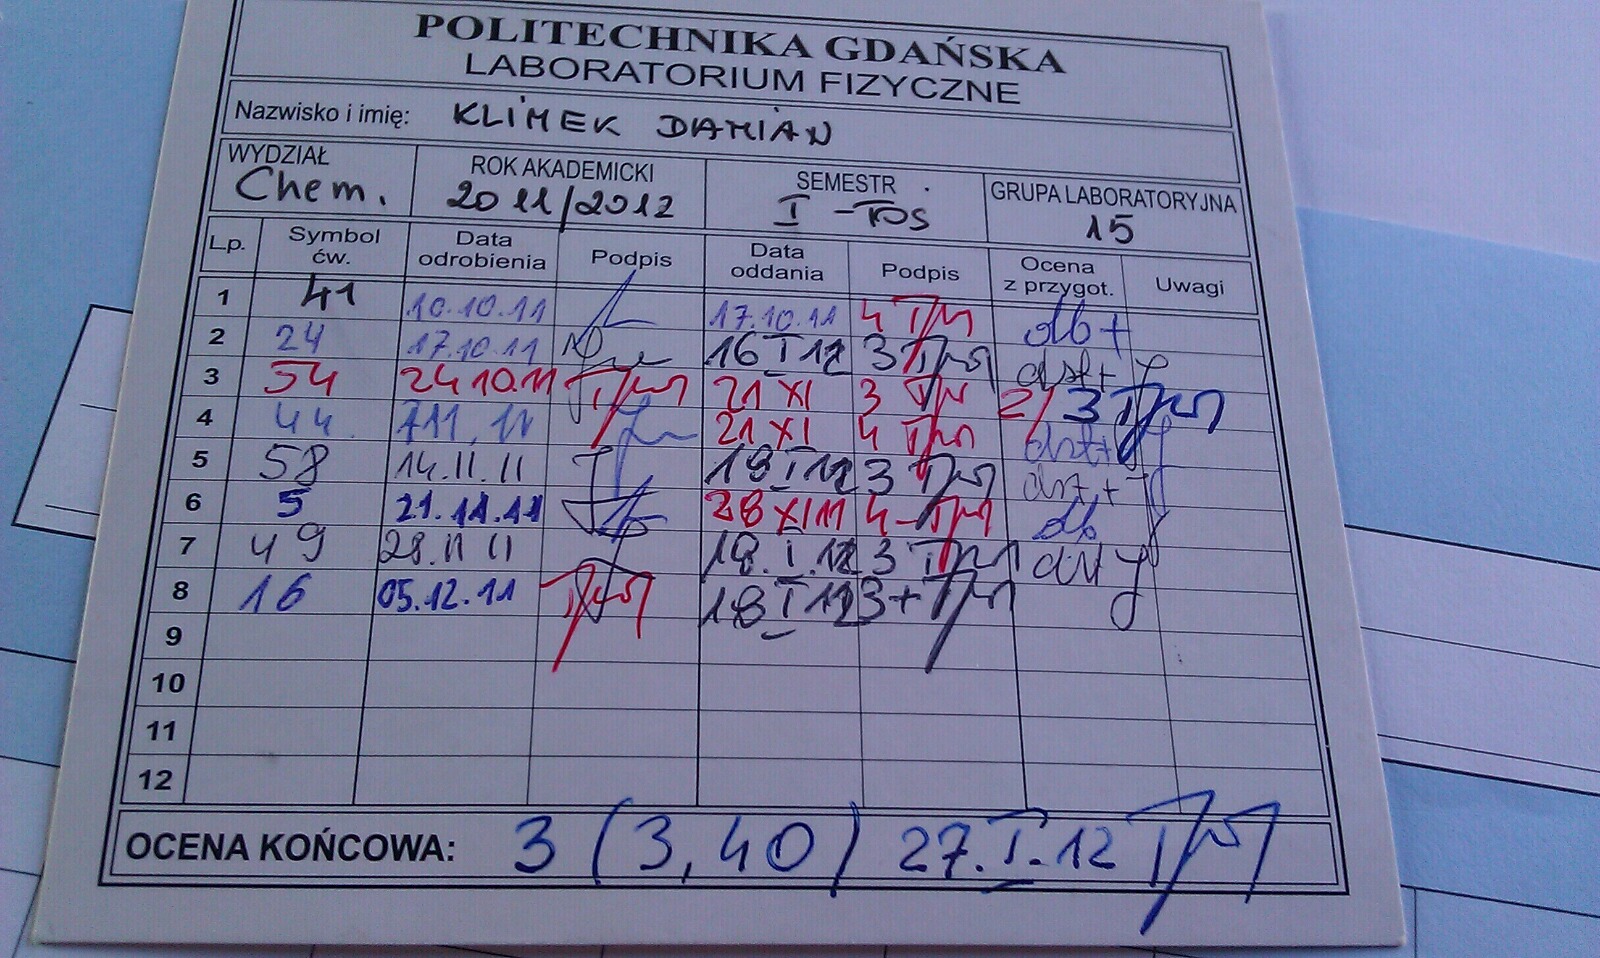 POLITECHNIKA GDAŃSKA
LABORATORIUM FIZYCZNE
Nazwisko i imię: KLIMEK DAMIAN
WYDZIAŁ ROK AKADEMICKI SEMESTR GRUPA LABORATORYJNA
Chem. 2011/2012 I - TOS 15
Lp. Symbol ćw. Data odrobienia Podpis Data oddania Podpis Ocena z przygot. Uwagi
1 41 10.10.11 17.10.11 4 db+
2 24 17.10.11 16 I 12 3 dst+
3 54 24 10.11 21 XI 3 2/3
4 44 7 11, 11 21 XI 4 dst+
5 58 14.11.11 18 I 12 3 dst+
6 5 21.11.11 28 XI 11 4- db
7 49 28.11 11 18.I.12 3
8 16 05.12.11 18 I 12 3+
9
10
11
12
OCENA KOŃCOWA: 3 (3,40) 27.I.12